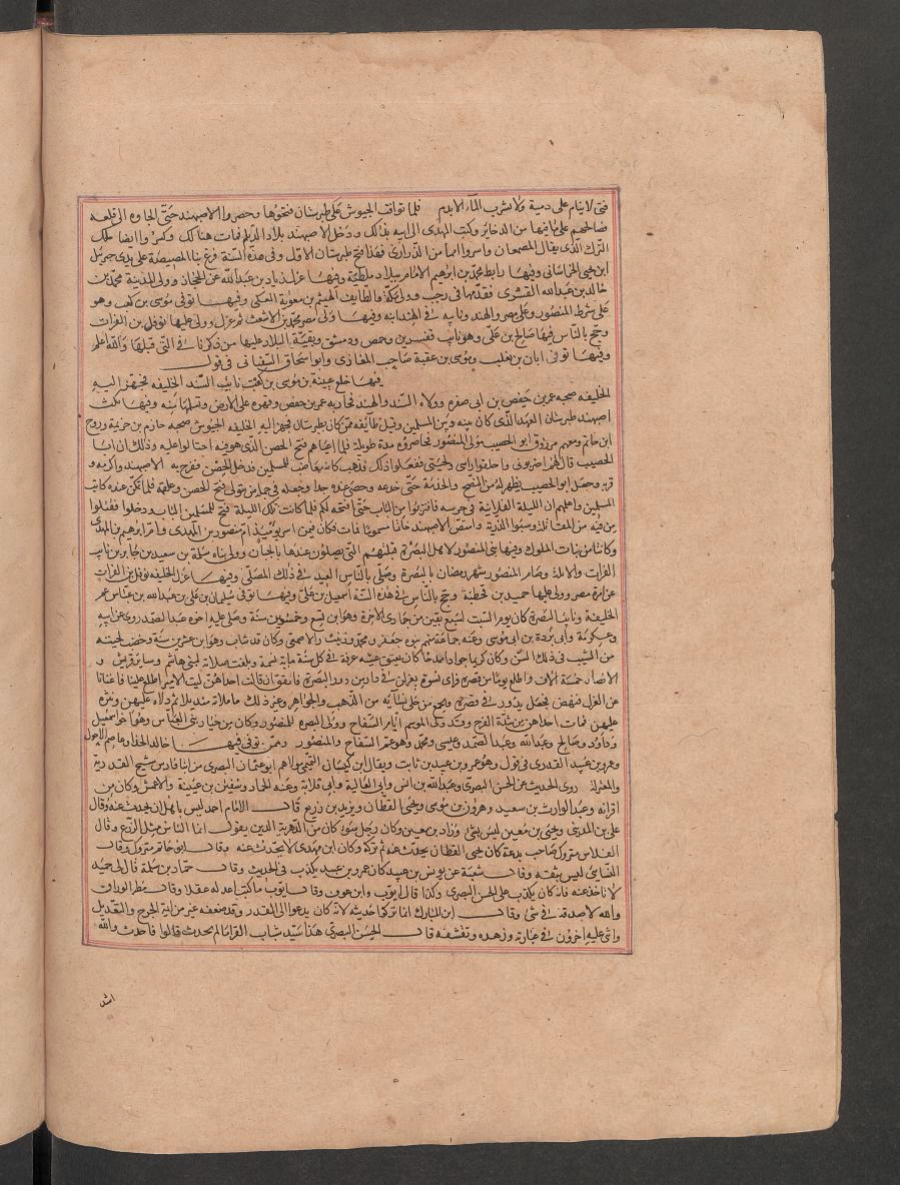 فتى لا ينام على دمية ولا يشرب الماء الا بدم فلما تواقف الجيوش على طبرستان فتحوها وحصروا الاصبهبذ حتى الجاوه الى قلعة
فصالحهم على ما فيها من الذخائر وكتب المهدى الى ابيه بذلك ودخل الاصبهبذ بلاد الديلم فمات هنالك وكسروا ايضا ملك
الترك الذى يقال المصمغان واسروا امما من الذرارى فهذا فتح طبرستان الاول وفى هذه السنة فرغ بنا المصيصة على يدى جبريل
ابن يحيى الخراسانى وفيها رابط محمد بن ابراهيم الامام ببلاد ملطية وفيها عزل زياد بن عبدالله عن الحجاز وولى المدينة محمد بن
خالد بن عبدالله القشرى فقدمها فى رجب وولى مكة والطايف الهيثم بن معوية العتكى وفيها توفى موسى بن كعب وهو
على شرط المنصور وعلى مصر والهند ونايبه فى الهند ابنه وفيها ولى مصر محمد بن الاشعث ثم عزل وولى عليها نوفل بن الفرات
وحج بالناس فيها صالح بن على وهو نايب قنسرين وحمص ودمشق وبقية البلاد عليها من ذكرنا فى التى قبلها والله اعلم
وفيها توفى ابان بن تغلب وموسى بن عقبة صاحب المغازى وابو اسحاق الشيبانى فى قول
فيها خلع عيينة بن موسى بن كعب نايب السند الخليفه فجهز اليه
الخليفه صحبه عمر بن حفص بن ابى صفره وولاه السند والهند فحاربه عمر بن حفص وقهره على الارض وتسلمها منه وفيها نكث
اصبهبذ طبرستان العهد الذى كان بينه وبين المسلمين وقتل طائفه ممن كان بطبرستان فجهز اليه الخليفه الجيوش صحبه خازم بن خزيمة وروح
ابن حاتم ومعهم مرزوق ابو الخصيب مولى المنصور فحاصروه مدة طويلة فلما اعياهم فتح الحصن الذى هو فيه احتالوا عليه وذلك ان ابا
الخصيب قال لهم اضربونى واحلقوا راسى ولحيتى ففعلوا ذلك فذهب كانه مغاضب للمسلمين فدخل الحصن ففرح به الاصبهبذ واكرمه و
قربه وجعل ابو الخصيب يظهر له من النصح والخدمة حتى خدعه وحظى عنده جدا وجعله فى جملة من يتولى فتح الحصن وغلقه فلما تمكن عنده كاتب
المسلمين واعلمهم ان الليلة الفلانية فى حرسه فاقتربوا من الباب حتى افتحه لكم فلما كانت تلك الليلة فتح للمسلمين الباب ودخلوا فقتلوا
من فيه من المقاتلة وسبوا الذرية وامتص الاصبهبذ خاتما مسموما فمات فكان فيمن اسر يوميذ ام منصور بن المهدى وام ابراهيم بن المهدى
وكانتا من بنات الملوك وفيها بنى المنصور لاهل البصرة قبلتهم التى يصلون عندها بالجبان وولى بناه سلمة بن سعيد بن جابر نايب
الفرات والابلة وصام المنصور شهر رمضان بالبصرة وصلى بالناس العيد فى ذلك المصلى وفيها عزل الخليفه نوفل بن الفرات
عن امرة مصر وولى عليها حميد بن قحطبة وحج بالناس فى هذه السنة اسمعيل بن على وفيها توفى سليمان بن على بن عبدالله بن عباس عم
الخليفة ونايب البصرة كان يوم السبت لسبع بقين من جمادى الاخرة وهو ابن تسع وخمسين سنة وصلى عليه اخوه عبد الصمد روى عن ابيه
وعكرمة وابى بردة بن ابى موسى وعنه جماعة منهم بنوه جعفر ومحمد وزينب والاصمعى وكان قد شاب وهو ابن عشرين سنة وخضب لحيته
من الشيب فى ذلك السن وكان كريما جوادا ممدحا كان يعتق عشية عرفة فى كل سنة ماية نسمة وبلغت صلاته لبنى هاشم وساير قريش و
الانصار خمسة الاف واطلع يوما من قصره فراى نسوة يغزلن فى دار من دور البصرة فاتفق ان قالت احداهن ليت الامير اطلع علينا فاغنانا
عن الغزل فنهض فجعل يدور فى قصره ويجمع من حلى نسائه من الذهب والجواهر وغير ذلك ما ملا منه منديلا ثم دلاه عليهن ونثره
عليهن فماتت احداهن من شدة الفرح وقد ولى الموسم ايام السفاح وولى البصره للمنصور وكان من خيار بنى العباس وهو اخو اسمعيل
وداود وصالح وعبدالله وعبدالصمد وعيسى ومحمد وهو عم السفاح والمنصور وممن توفى فيها خالد الحذاء وعاصم الاحول
وعمرو بن عبيد القدرى فى قول وهو عمرو بن عبيد بن ثابت ويقال ابن كيسان التيمى مولاهم ابو عثمان البصرى من ابنا فارس شيخ القدرية
والمعتزلة روى الحديث عن الحسن البصرى وعبدالله بن انس وابى العالية وابى قلابة وعنه الحمادان وسفين بن عيينة والاعمش وكان من
اقرانه وعبد الوارث بن سعيد وهرون بن موسى ويحيى القطان ويزيد بن زريع قال الامام احمد ليس باهل ان يحدث عنه وقال
على بن المدينى ويحيى بن معين ليس بشئ وزاد بن معين وكان رجل سوء كان من الدهرية الذين يقولون انما الناس مثل الزرع وقال
الفلاس متروك صاحب بدعة كان يحيى القطان يحدث عنه ثم تركه وكان ابن مهدى لا يحدث عنه وقال ابو حاتم متروك وقال
النسائى ليس بثقة وقال شعبة عن يونس بن عبيد كان عمرو بن عبيد يكذب فى الحديث وقال حماد بن سلمة قال لى حميد
لا تاخذ عنه فانه كان يكذب على الحسن البصرى وكذا قال ايوب وابن عون وقال ايوب ما كنت اعد له عقلا وقال مطر الوراق
والله لا اصدقه فى شئ وقال ابن المبارك انما تركوا حديثه لانه كان يدعوا الى القدر وقد ضعفه غير من ايمة الجرح والتعديل
واثنى عليه اخرون فى عبادته وزهده وتقشفه قال الحسن البصرى هذا سيد شباب القرا ما لم يحدث قالوا فاحدث والله
اشد